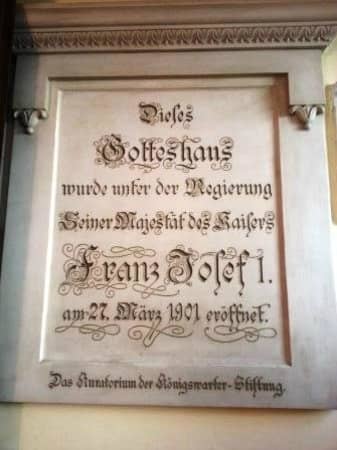 Dieses
Gotteshaus
wurde unter der Regierung
Seiner Majestät des Kaisers
Franz Josef 1.
am 27. März 1901 eröffnet.
Das Kuratorium der Königswarter-Stiftung.